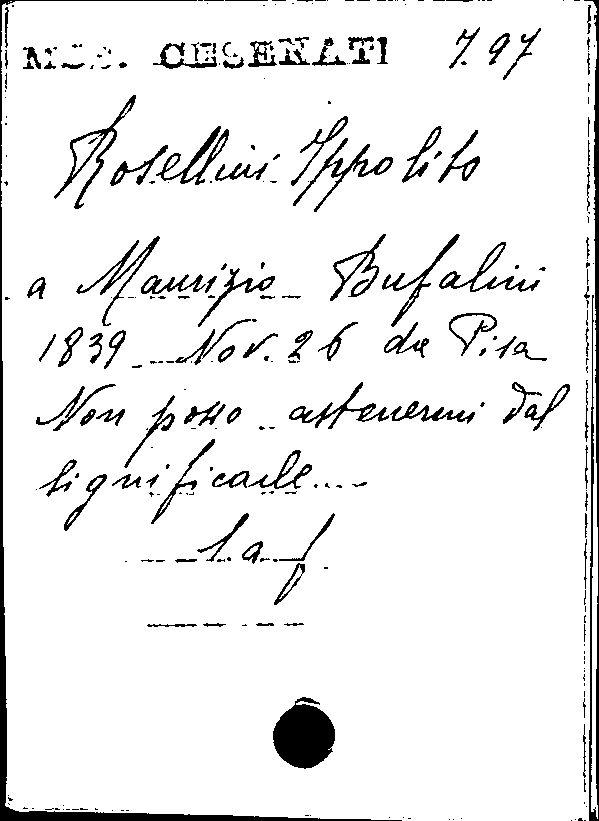 MSS. CESENATI 7.97
Rosellini Ippolito
a Maurizio Bufalini
1839 Nov. 26 da Pisa
Non posso astenermi dal
significarle....
1 a f.